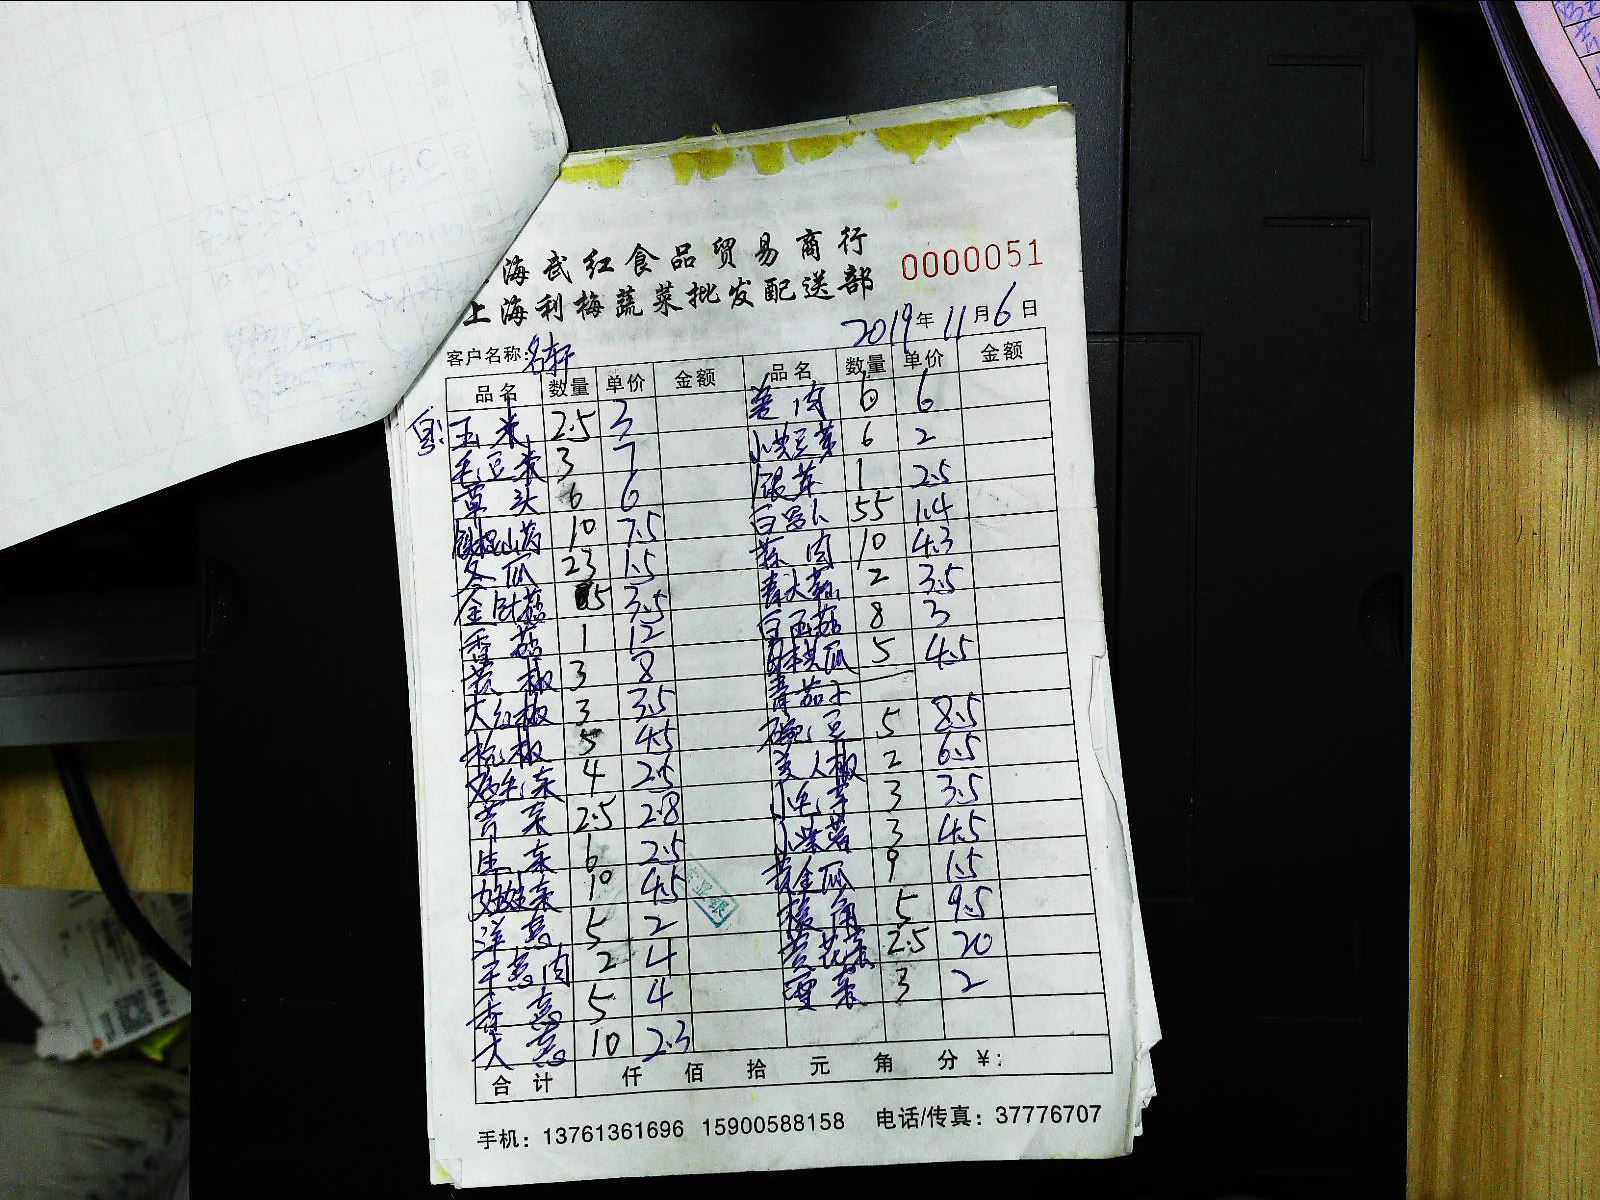 海武红食品贸易商行
上海利梅蔬菜批发配送部
0000051
2019年11月6日
客户名称:名轩
品名 数量 单价 金额 品名 数量 单价 金额
玉米 2.5 3 姜肉 6 6
毛豆米 3 7 小黄豆芽 6 2
草头 6 6 银芽 1 2.5
铁棍山药 10 7.5 白萝卜 55 1.4
冬瓜 23 1.5 蒜肉 10 4.3
金针菇 5 3.5 青大蒜 2 3.5
香菇 1 12 白玉菇 8 3
黄椒 3 8 黄瓜 5 4.5
大红椒 3 3.5 青茄子
杭椒 5 4.5 豌豆 5 8.5
鸡毛菜 4 2.5 美人椒 2 6.5
青菜 2.5 2.8 小毛芋 3 3.5
生菜 6 2.5 小紫薯 3 4.5
娃娃菜 10 4.5 黄金瓜 9 1.5
洋葱 5 2 菱角 5 9.5
干葱肉 2 4 黄花菜 2.5 20
香葱 5 4 雪菜 3 2
大葱 10 2.3
合计 仟 佰 拾 元 角 分 ¥:
手机: 13761361696 15900588158 电话/传真: 37776707